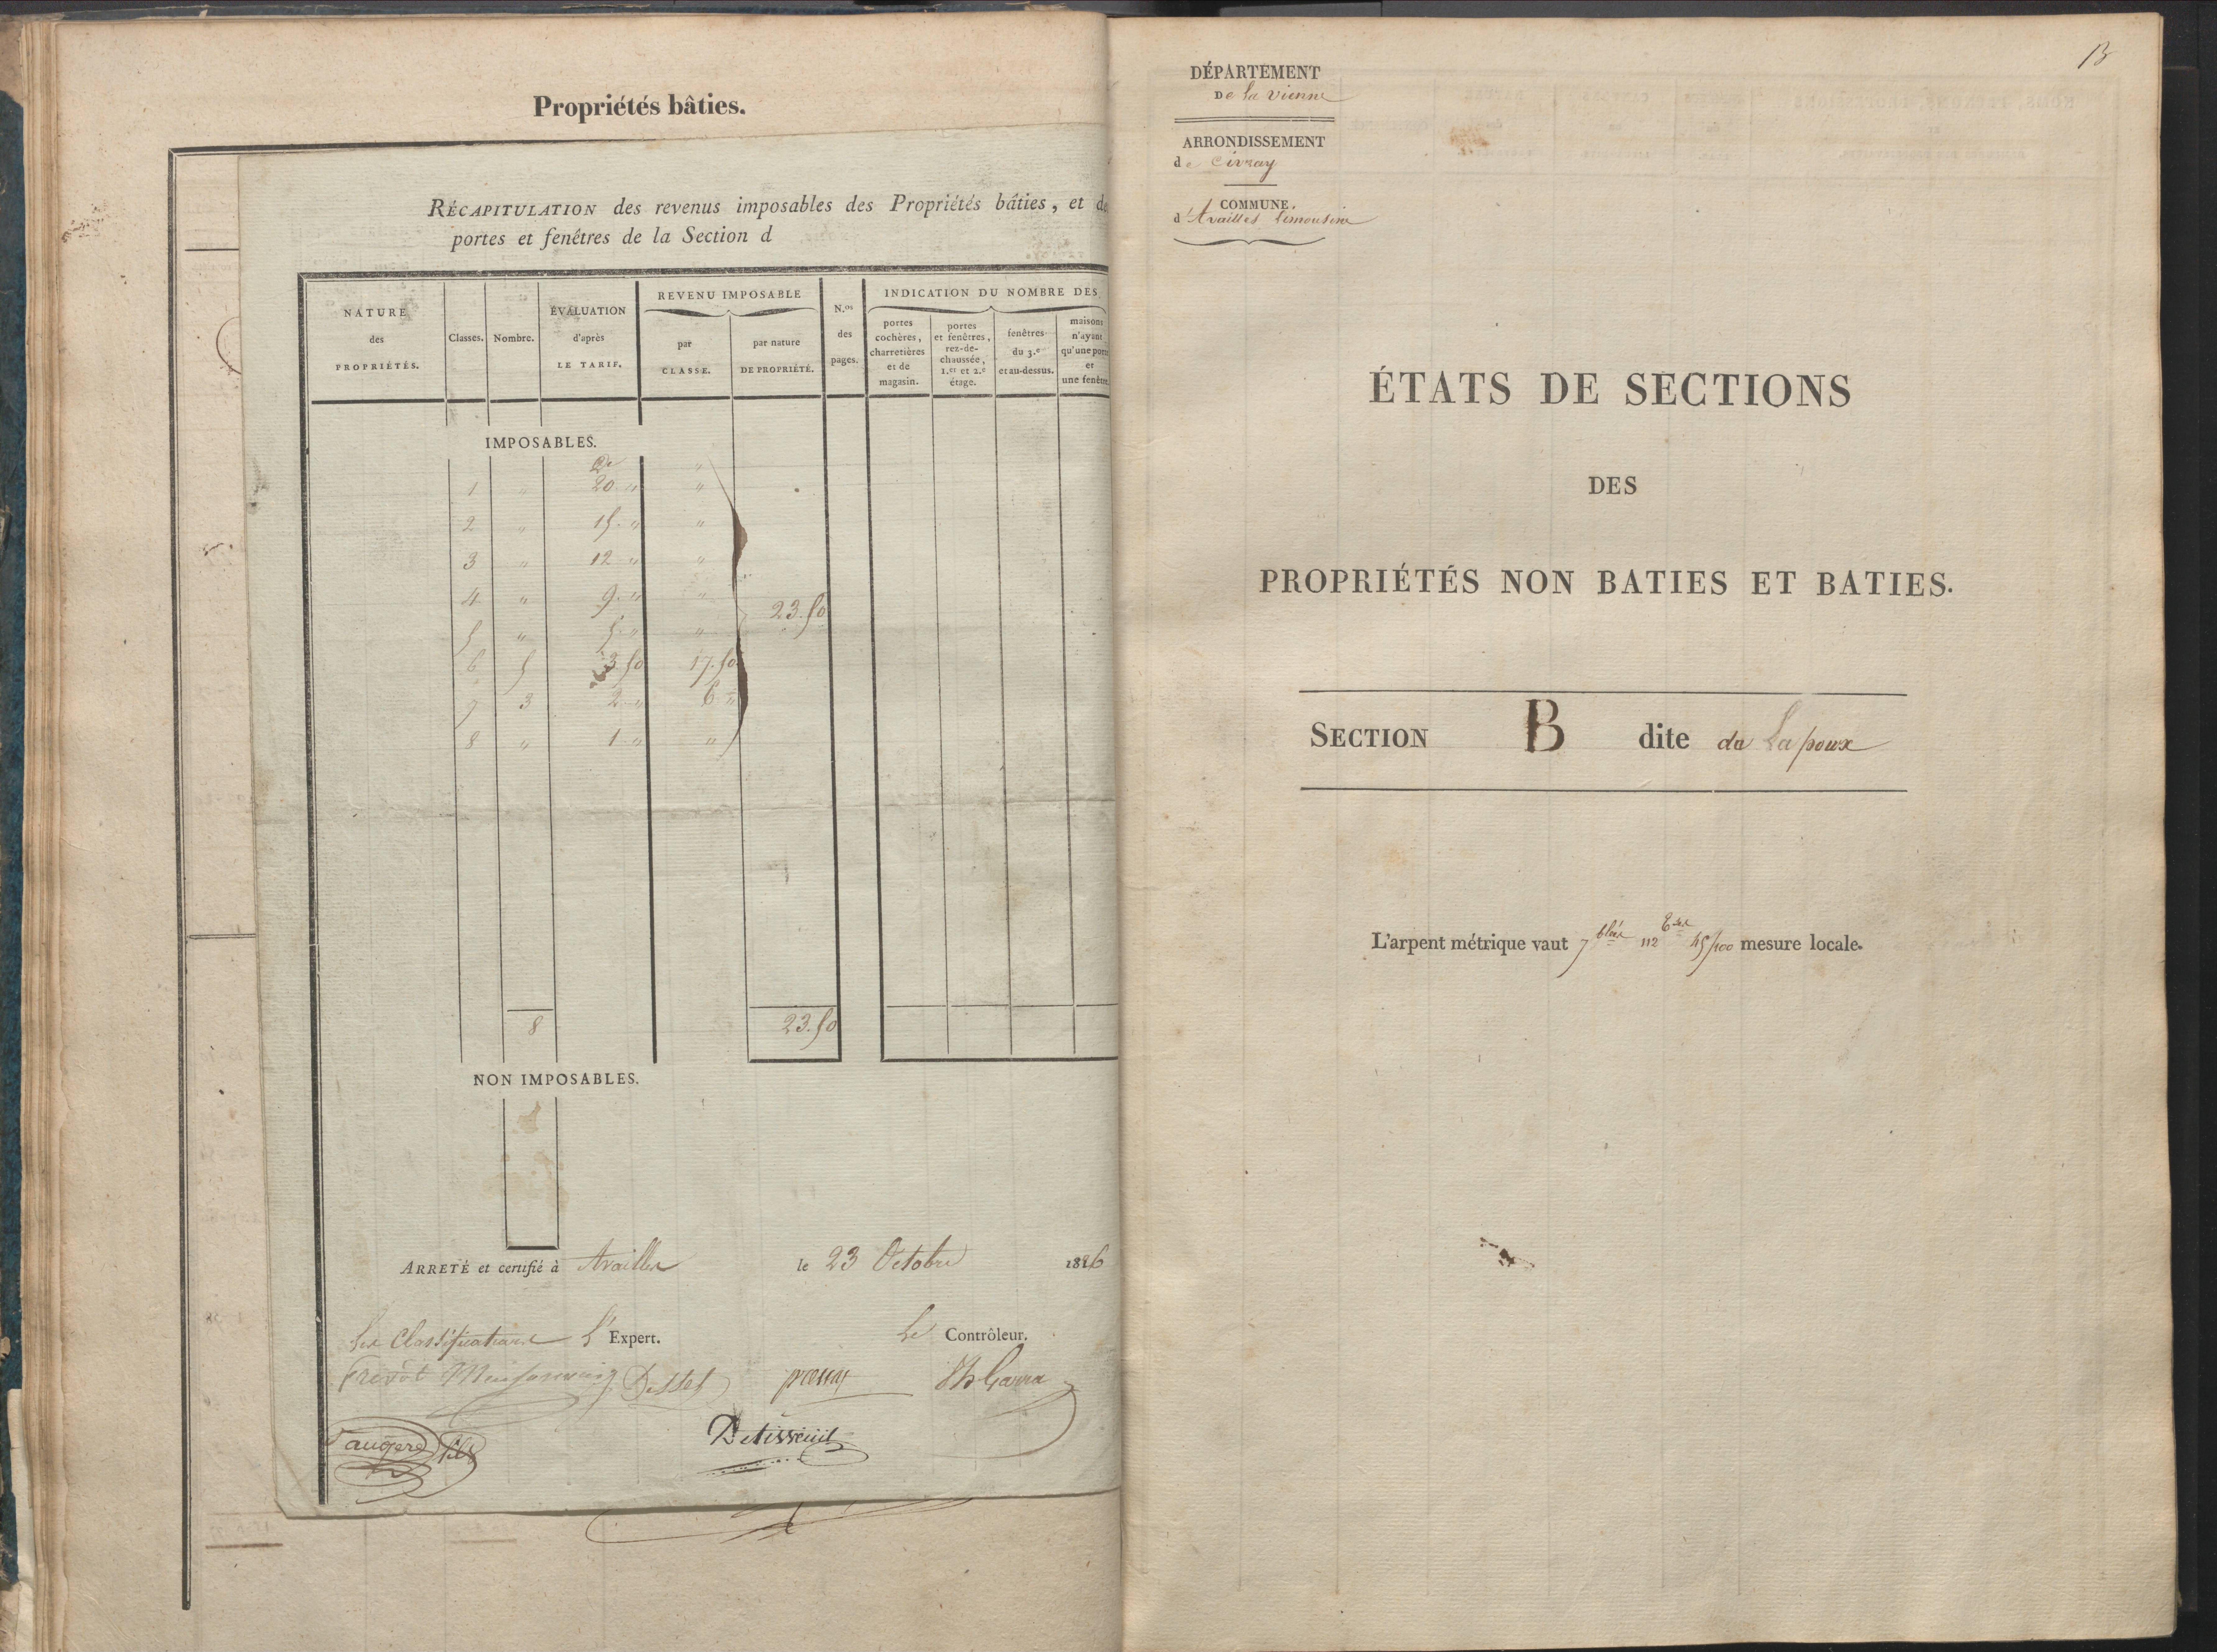 Propriétés bâties.
RÉCAPITULATION des revenus imposables des Propriétés bâties, et de
portes et fenêtres de la Section d
NATURE des PROPRIÉTÉS.
Classes.
Nombre.
ÉVALUATION d'après LE TARIF.
REVENU IMPOSABLE
par CLASSE.
par nature DE PROPRIÉTÉ.
N.os des pages.
INDICATION DU NOMBRE DES
portes cochères, charretières et de magasin.
portes et fenêtres, rez-de-chaussée, 1.er et 2.e étage.
fenêtres du 3.e et au-dessus.
maisons n'ayant qu'une porte et une fenêtre.
IMPOSABLES.
1 " 20 " "
2 " 15 " "
3 " 12 " "
4 " 9 " "
23.50
5 " 5 " "
6 5 3.50 17.50
7 3 2 " 6 "
8 " 1 " "
8 23.50
NON IMPOSABLES.
ARRETÉ et certifié à Availles le 23 Octobre 1826
Les Classificateurs L'Expert. Le Contrôleur.
Prevôt Dessel
Faugere fils
DÉPARTEMENT
De la Vienne
ARRONDISSEMENT
de Civray
COMMUNE.
d'Availles Limousine
B
ÉTATS DE SECTIONS
DES
PROPRIÉTÉS NON BATIES ET BATIES.
SECTION B dite de Lapoux
L'arpent métrique vaut 7 112 45/100 mesure locale.